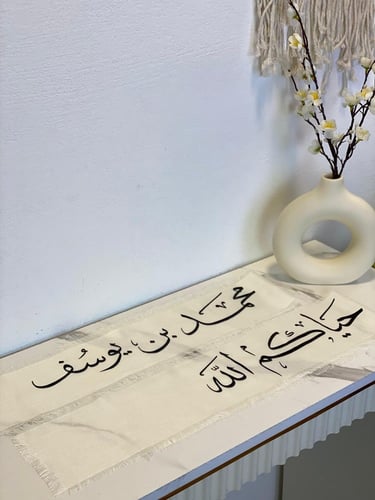 محمد بن يوسف
حياكم الله